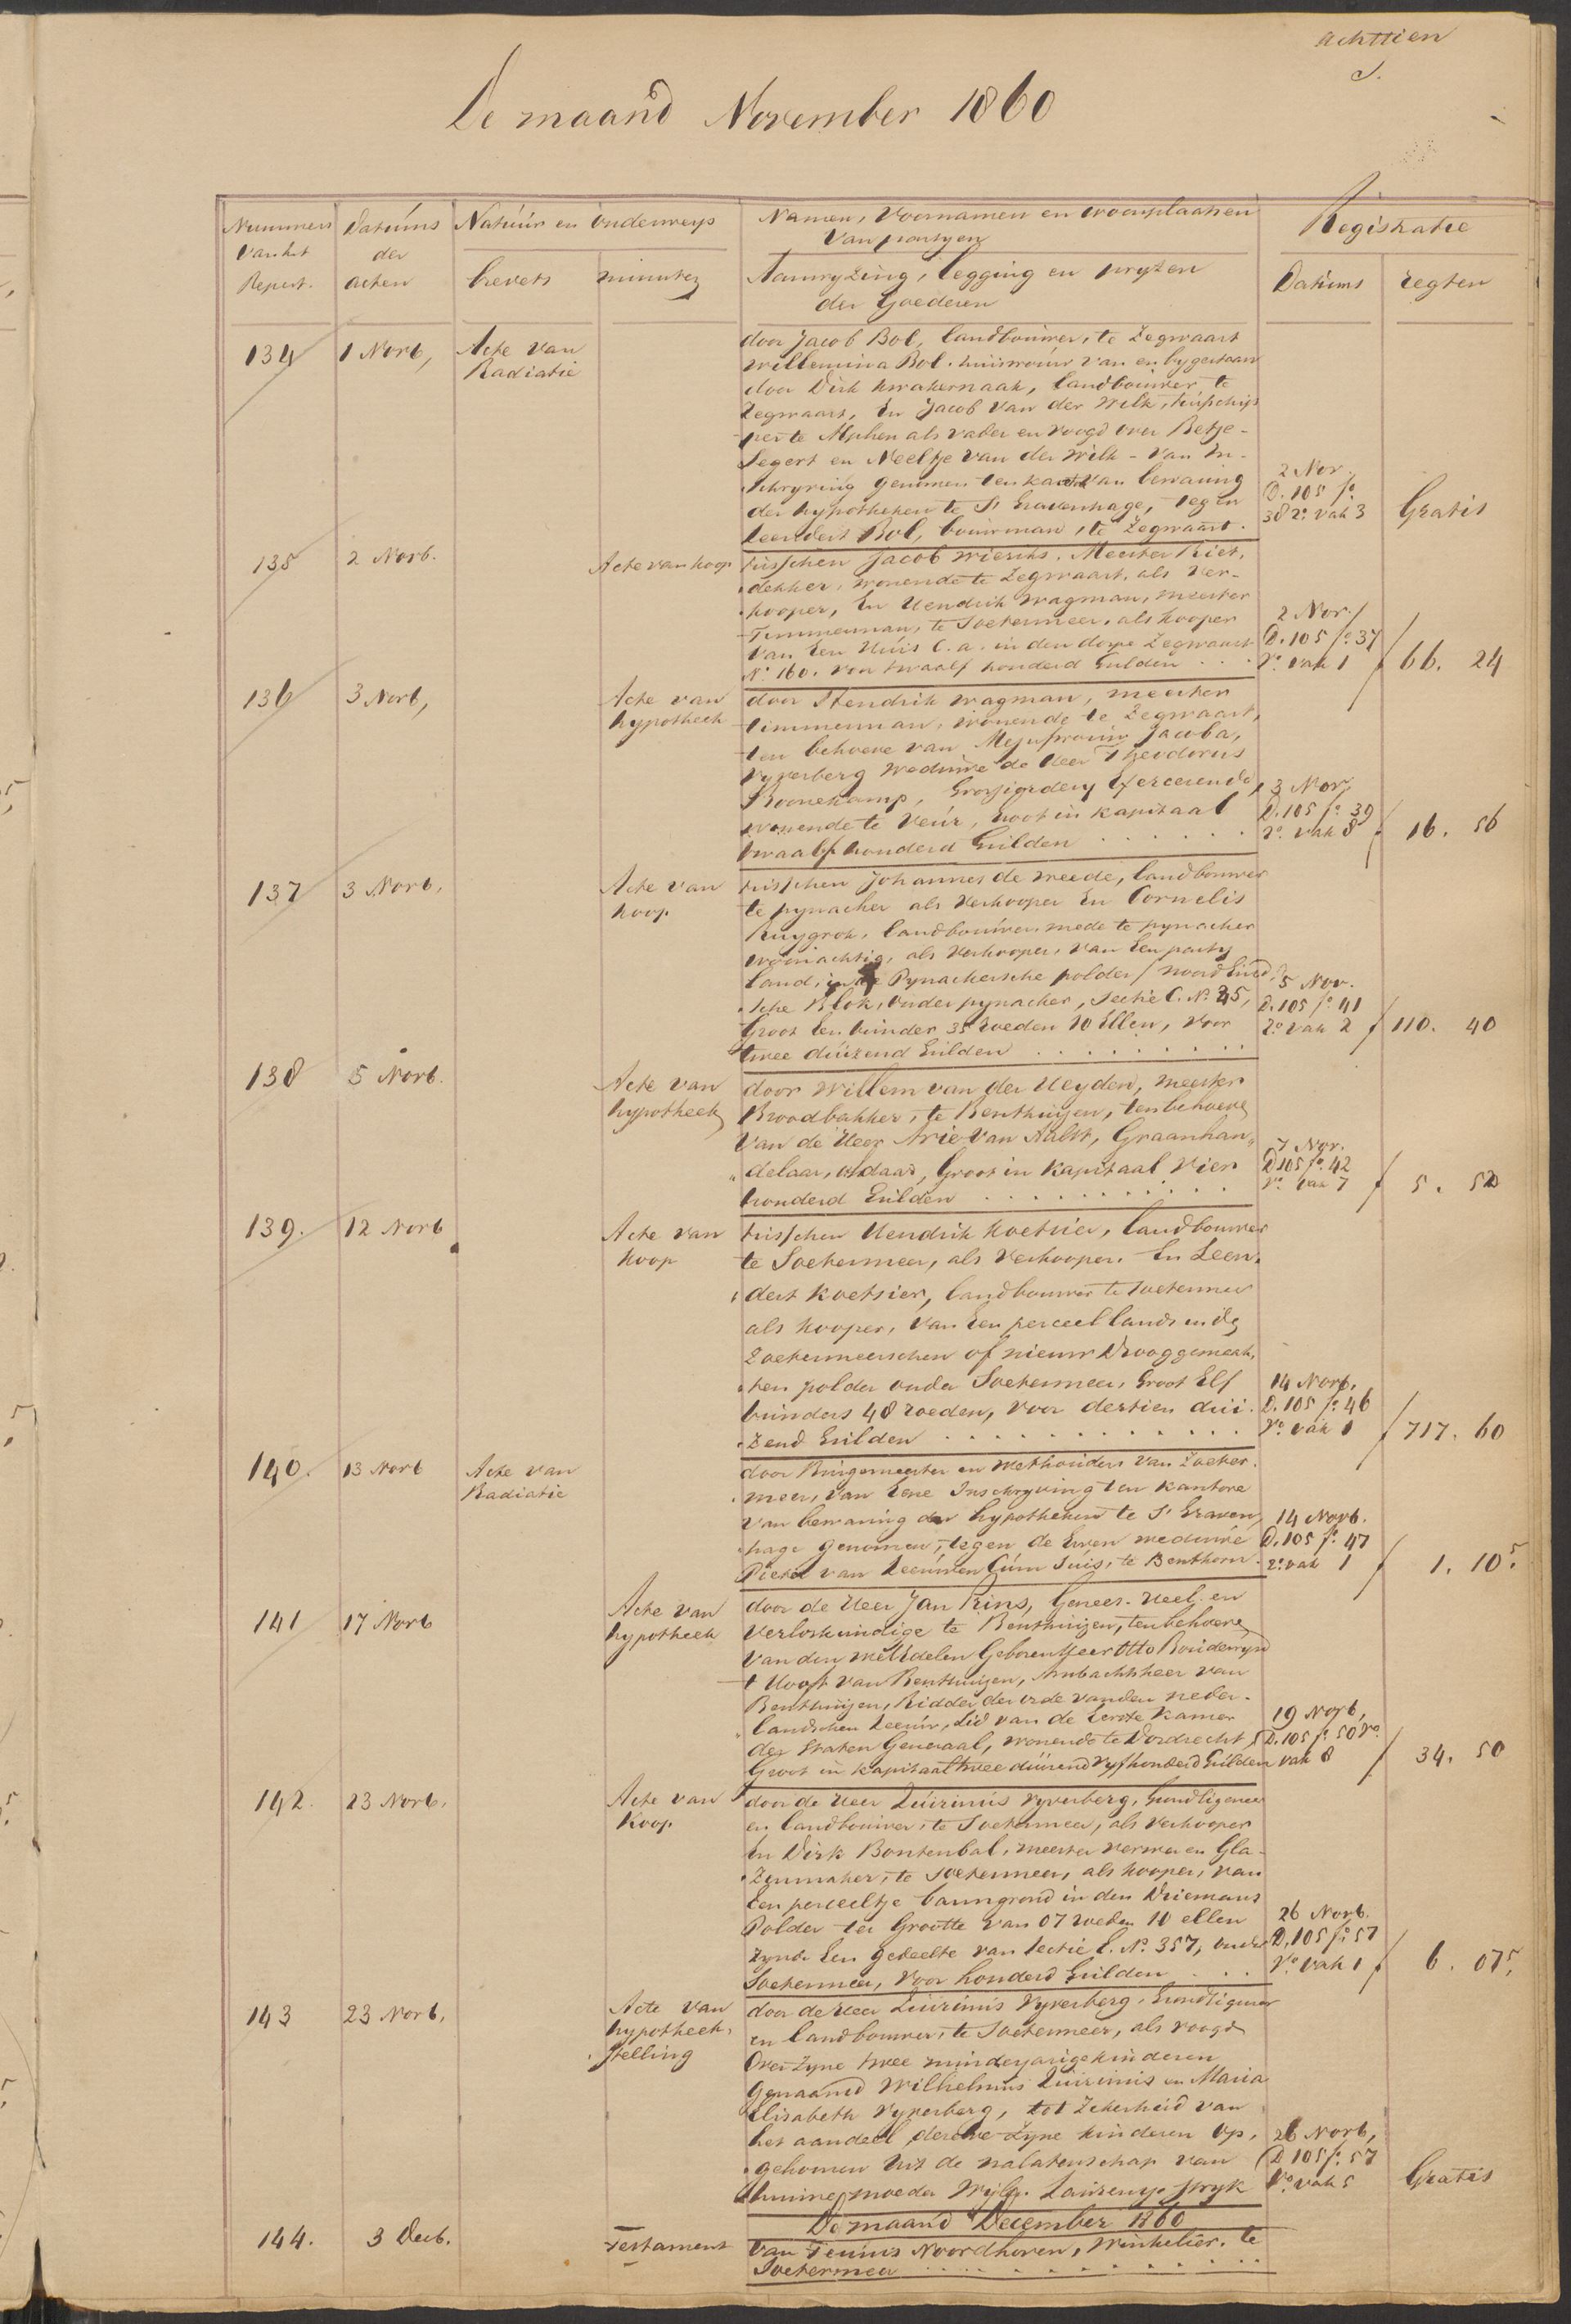 achttien
De maand November 1860
Nummers van het Repert.
Datums der acten
Natuur en Onderwerp
brevets
minuten
Namen, Voornamen en woonplaatsen
van partyen
Aanwyzing, legging en pryzen
der Goederen
Registratie
Datums
regten
134
1 Novb,
Acte van
Radiatie
door Jacob Bol, landbouwer, te Zegwaart
Willemina Bol. huisvrouw van en bygestaan
door Dirk Kwakernaak, landbouwer te
Zegwaart, En Jacob van der Wilk,
per te Alphen als vader en voogd over Betje-
Segert en Neeltje van der Wilk - van In-
schryving genomen ten kantore van bewaring
der hypotheken te S' Gravenhage, tegen
Leendert Bol, bouwman, te Zegwaart.
2 Nov.
D. 105 fo.
38 2o. vak 3
Gratis
135
2 Novb.
Acte van koop
tusschen Jacob Wierckx. Meester Riet,
dekker, wonende te Zegwaart, als Ver-
kooper, En Hendrik Wagman, meester
Timmerman, te Soetermeer, als kooper
van Een Huis C.a. in den dorpe Zegwaart
No. 160. voor twaalf honderd Gulden . . .
2 Nov.
D. 105 fo. 37
Vo. vak 1
f 66. 24
136
3 Novb,
Acte van
hypotheek
door Hendrik Wagman, meester
timmerman, wonende te Zegwaart,
ten behoeve van Mejufvrouw Jacoba,
Vyverberg Weduwe de Heer Theodorus
Boonekamp, Grossierdery Exerceerende,
wonende te Veur, Groot in kapitaal
twaalf honderd Gulden . . . . . .
3 Nov.
D. 105 fo. 39
2o. vak 8
f 16. 56
137
3 Novb,
Acte van
koop
tusschen Johannes de Vreede, landbouwer
te pynacker als Verkooper En Cornelis
Ruygrok, landbouwer, mede te pynacker
woonachtig, als Verkooper, van Een party
land, in de Pynackersche polder / noord Eind
sche Blok, onder pynacker, Sectie C. No. 25,
Groot Een bunder 35 roeden 70 Ellen, voor
twee duizend Gulden . . . . . . . . .
5 Nov.
D. 105 fo. 41
2o. vak 2
f 110. 40
138
5 Novb.
Acte van
hypotheek
door Willem van der Heyden, meester
Broodbakker, te Benthuizen, ten behoeve
van de Heer Arie van Aalst, Graanhan„
„delaar, aldaar, Groot in Kapitaal Vier
honderd Gulden . . . . . . . . . . .
7 Nov.
D 105 fo. 42
Vo. vak 7
f 5. 52
139.
12 Novb
Acte van
koop
tusschen Hendrik Koetsier, landbouwer
te Soetermeer, als Verkooper. En Leen.
dert Koetsier, landbouwer te Soetermeer
als kooper, van Een perceel lands in de
Zoetermeerschen of nieuw Drooggemaak,
ten polder onder Soetermeer, Groot Elf
bunders 48 roeden, voor dertien dui-
zend Gulden . . . . . . . . . . . . .
14 Novb,
D. 105 fo. 46
Vo. vak 1
f 717. 60
140.
13 Novb
Acte van
Radiatie
door Burgemeester en Wethouders van Zoeter.
meer, van Eene Inschryving ten kantore
van bewaring der hypotheken te S' Graven
hage genomen, tegen de Erven weduwe
Pieter van Leeuwen Cum Suis, te Benthorn.
14 Novb.
D. 105 fo. 47
2o. vak 1
f 1. 10 5.
141
17 Novb
Acte van
hypotheek
door de Heer Jan Prins, Genees. Heel. en
Verloskundige te Benthuizen, ten behoeve
van den WelEdelen Geboren Heer Otto Boudewyn
t Hooft van Benthuizen, Ambachtsheer van
Benthuizen, Ridder der orde van den neder-
landschen Leeuw, Lid van de Eerste Kamer
der Staten Generaal, wonende te Dordrecht,
Groot in kapitaal twee duizend Vyfhonderd Gulden
19 Novb,
D. 105 fo. 50 Vo.
vak 8
f 34. 50
142.
23 Novb.
Acte van
Koop
door de Heer Quirinus Vyverberg, Grondeigenaar
en landbouwer, te Soetermeer, als Verkooper
En Dirk Bontenbal, meester verwer en Gla-
zenmaker, te Soetermeer, als kooper, van
Een perceeltje bouwgrond in den Driemans
Polder ter Grootte van 07 roeden 10 ellen
zynde Een gedeelte van Sectie C. No. 357, onder
Soetermeer, voor honderd Gulden . . .
26 Novb.
D. 105 fo. 57
Vo. vak 1
f 6. 07 5.
143
23 Novb.
Acte van
hypotheek,
stelling
door de Heer Quirinus Vyverberg, Grondeigenaar
en landbouwer, te Soetermeer, als voogd
Over Zyne twee minderjarige kinderen
Genaamd Wilhelmus Quirinus en Maria
Elisabeth Vyverberg, tot Zekerheid van
het aandeel, derzelve Zyne kinderen op.
gekomen uit de nalatenschap van
hunne moeder Wyln.
26 Novb,
D 105 fo. 57
Vo. vak 5
Gratis
De maand December 1860
144.
3 Decb.
Testament
van Teunis Noordhoven, Winkelier. te
Soetermeer . . . . . . . . . . . .